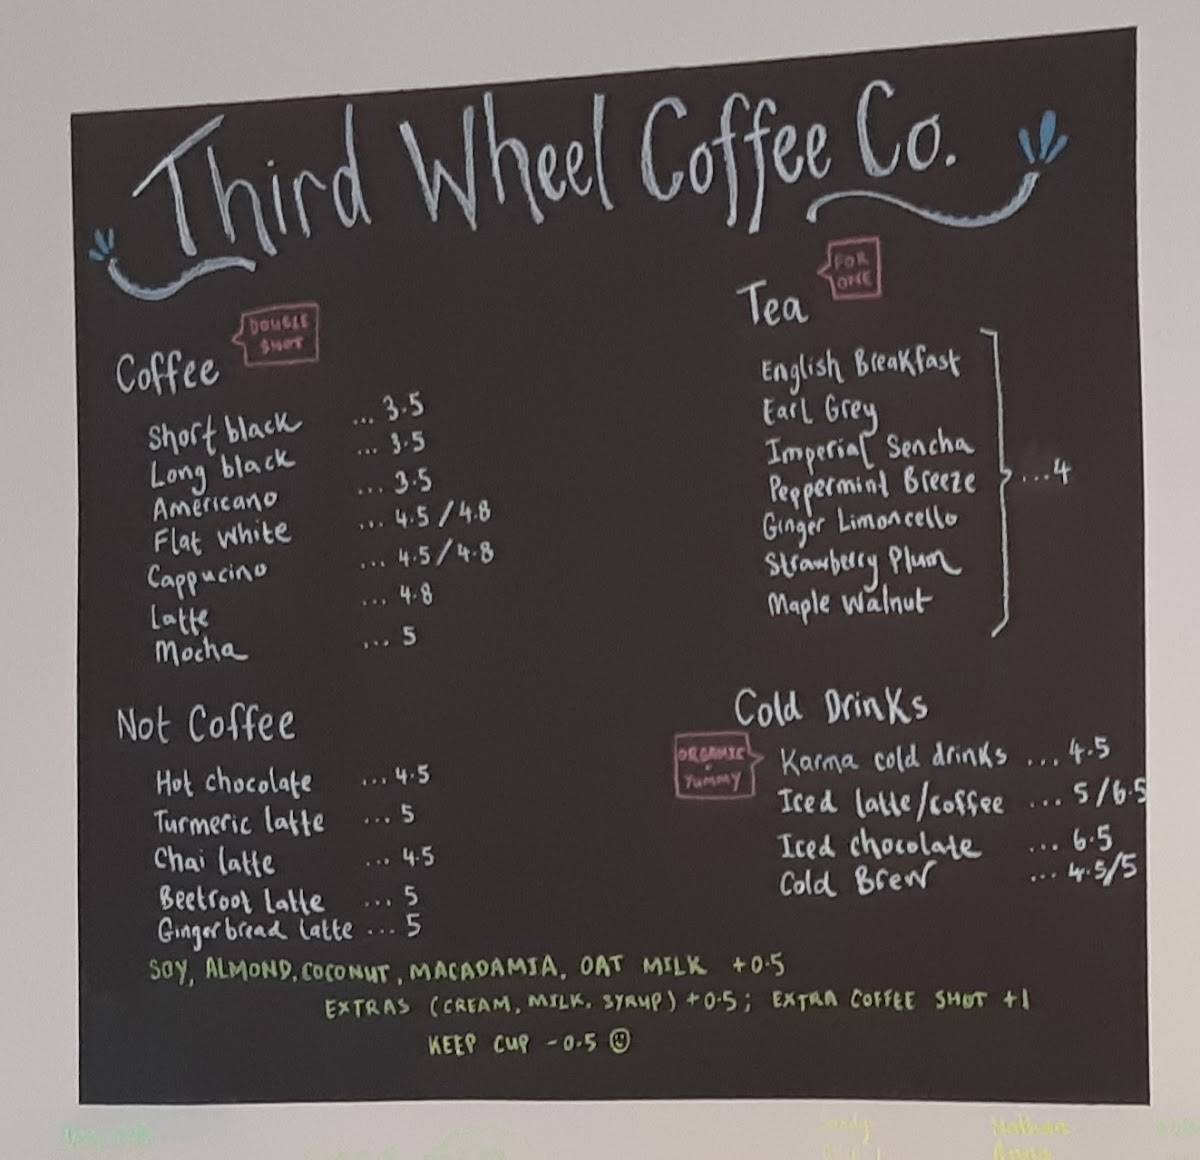 Third Wheel Coffee Co.
Coffee
DOUBLE
SHOT
Short black ... 3.5
Long black ... 3.5
Americano ... 3.5
Flat White ... 4.5/4.8
Cappucino ... 4.5/4.8
Latte ... 4.8
Mocha ... 5
Not Coffee
Hot chocolate ... 4.5
Turmeric latte ... 5
Chai latte ... 4.5
Beetroot Latte ... 5
Gingerbread latte ... 5
Tea
FOR
ONE
English Breakfast
Earl Grey
Imperial Sencha
Peppermint Breeze
Ginger Limoncello
Strawberry Plum
Maple Walnut
...4
Cold Drinks
ORGANIC
+
Yummy
Karma cold drinks ... 4.5
Iced latte/coffee ... 5/6.5
Iced chocolate ... 6.5
Cold Brew ... 4.5/5
SOY, ALMOND, COCONUT, MACADAMIA, OAT MILK +0.5
EXTRAS (CREAM, MILK, SYRUP) +0.5; EXTRA COFFEE SHOT +1
KEEP CUP -0.5
Nathan
Anna